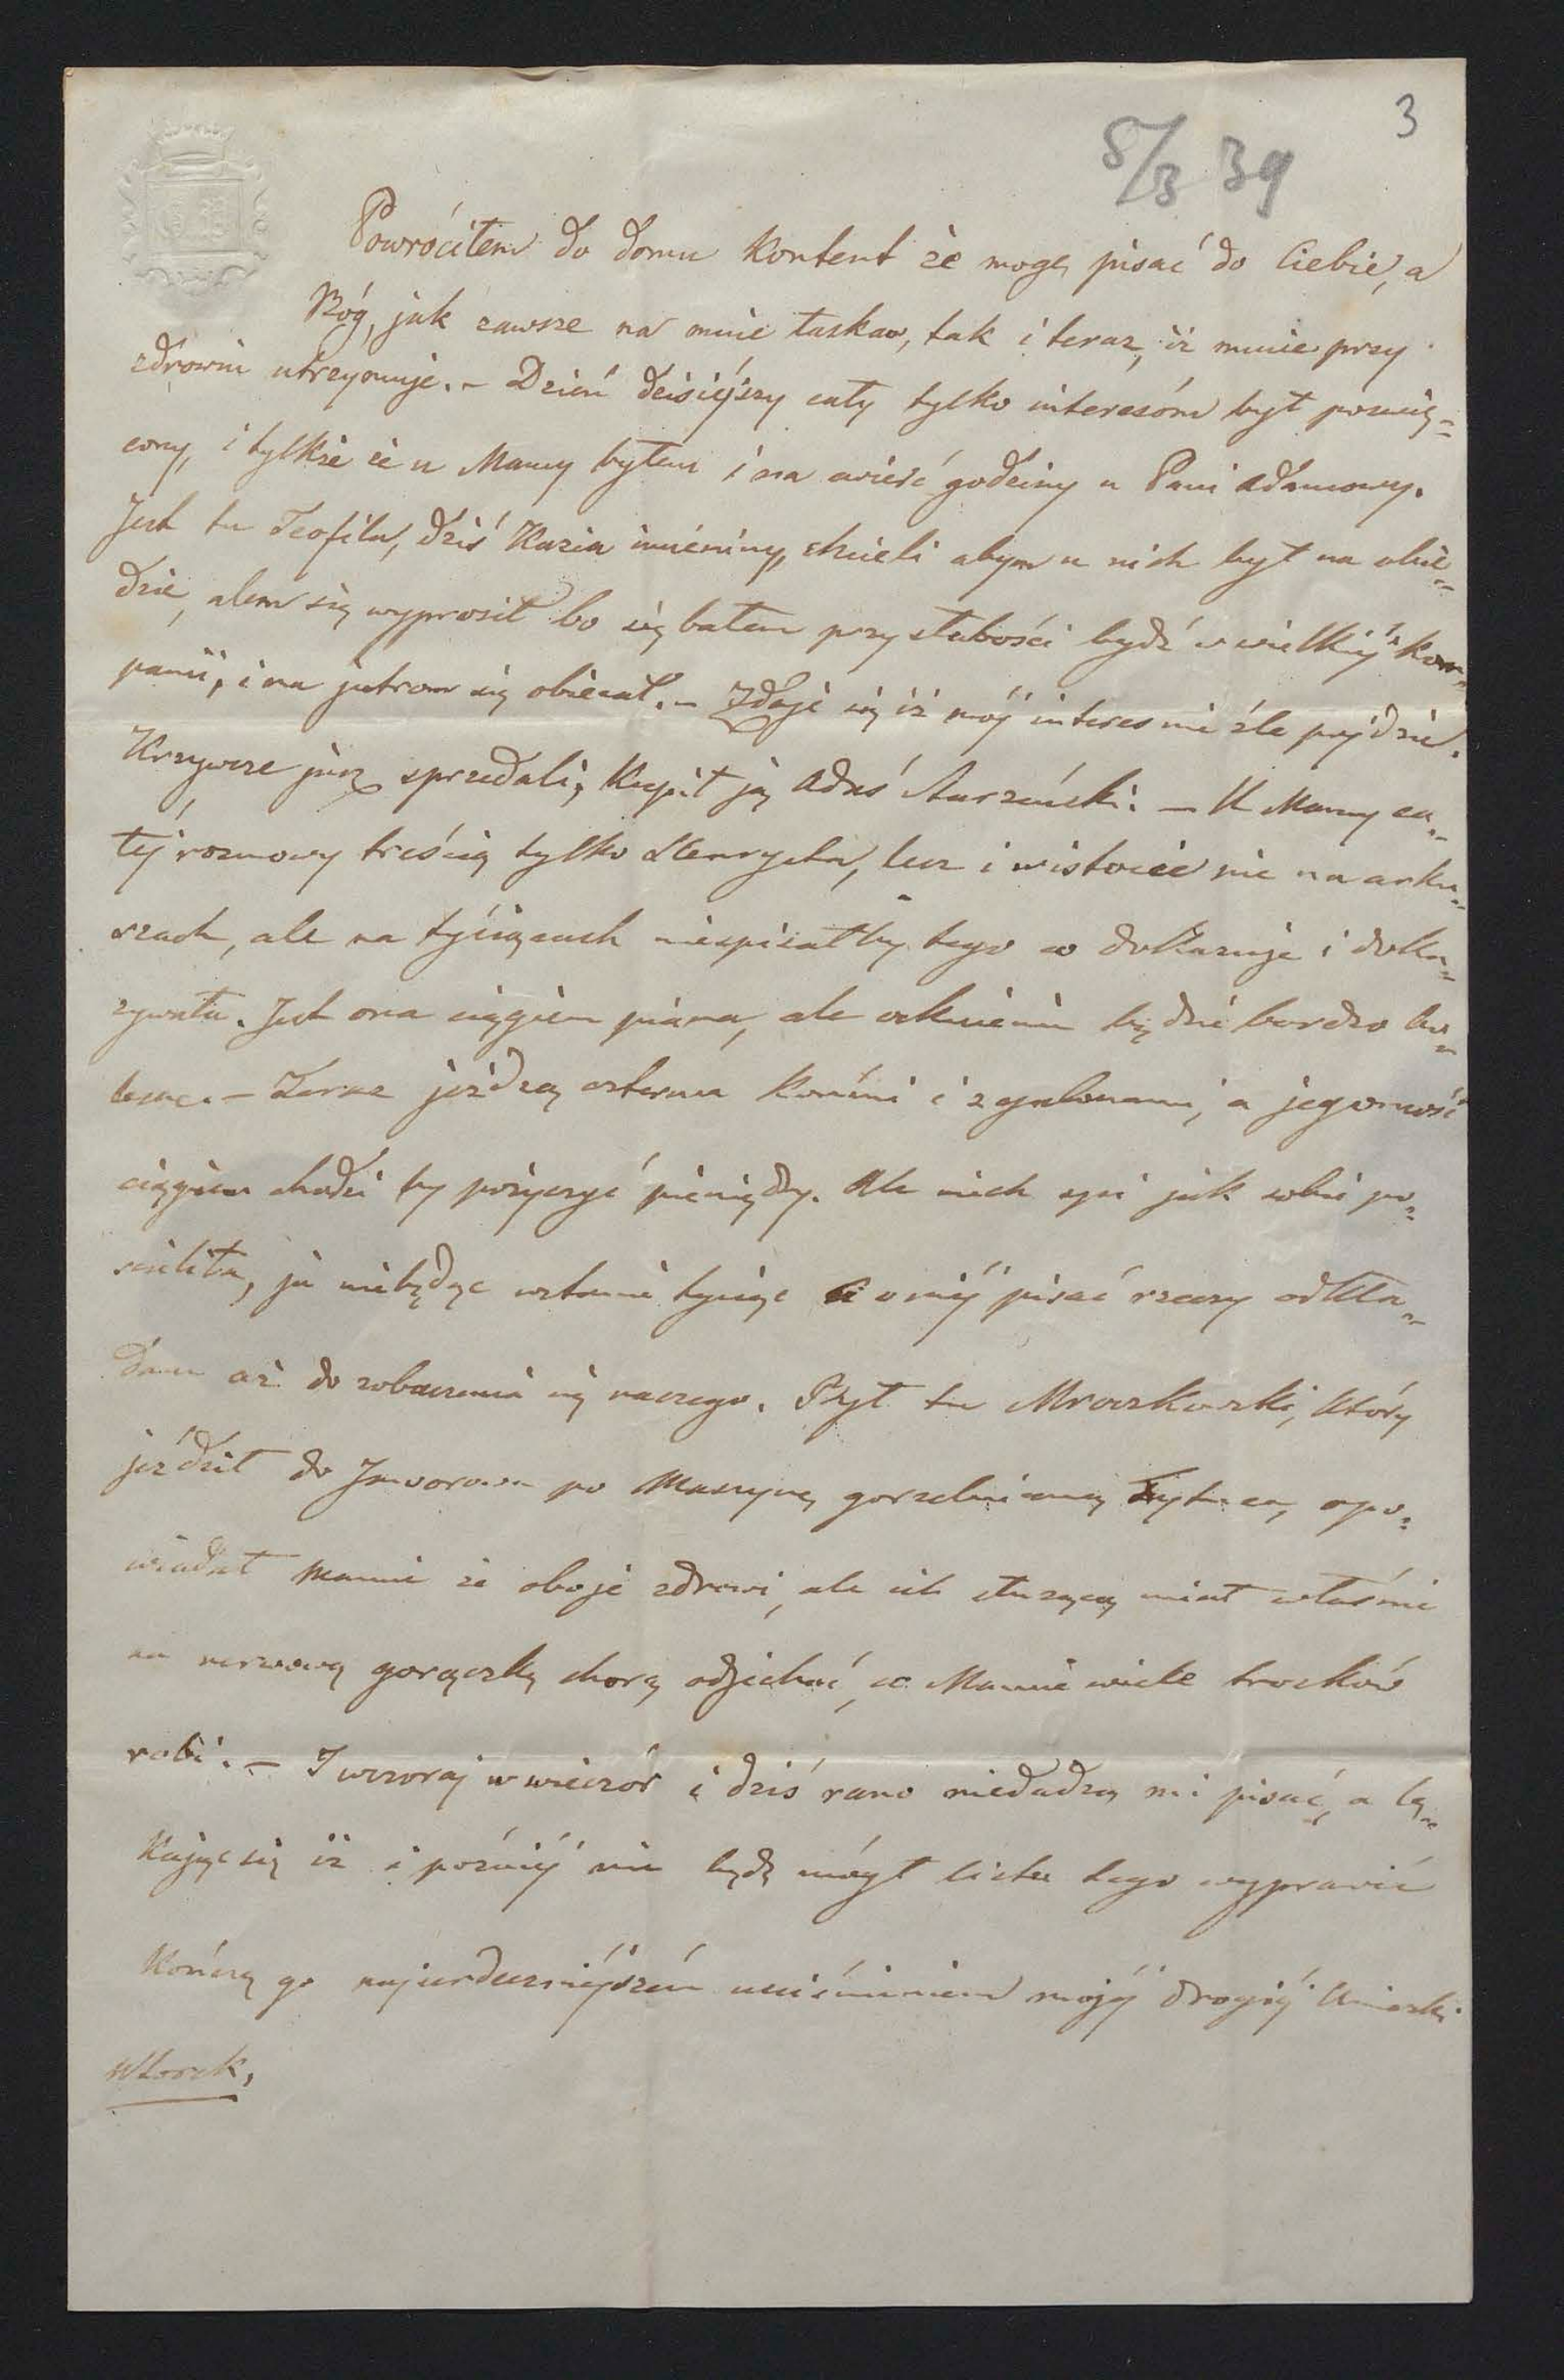 3
5/3 39
Powróciłem do domu kontent że mogę pisać do Ciebie, a
Bóg, jak zawsze na mnie łaskaw, tak i teraz, iż mnie przy
zdrowiu utrzymuje. – Dzień dzisiéjszy cały tylko interesóm był poświę=
cony, i tylkże że u Mamy byłem i na ćwierć godziny u Pani Adamowy.
Jest tu Teofila, dziś Kazia imieniny, chcieli abym u nich był na obie=
dzie, alem się wyprosił bo się bałem przy słabości bydź w wielkiéj kom=
panii, i na jutrom się obiecał. – Zdaje się iż mój interes nie źle pójdzie.
Krzywcze już sprzedali, kupił ją Adaś Starzeński. – U Mamy ca=
łéj rozmowy treścią tylko Henrycha, lecz i wistocie nie na arku=
szach, ale na tysiącach niespisałby tego co dokazuje i doka=
zywała. Jest ona ciągiem piana, ale ocknienie będzie bardzo bo=
lesne. – Teraz jeżdżą czterma końmi i z galonami, a jegomość
ciągiem chodzi by pożyczyć pieniędzy. Ale niech śpi jak sobie po=
ścieliła, ja niebędąc wstanie tysiąc o niéj pisać rzeczy odkła=
dam aż do zobaczenia się naszego. Był tu Mroczkowski, który
jeździł do Jaworowa po maszynę gorzelnianą, apo=
wiadał Mamie że oboje zdrowi, ale ich służącą miał właśnie
na nerwową gorączkę chorą odjechać, co Mamie wiele trosków
robi. – I wczoraj w wieczór i dziś rano niedadzą mi pisać, a lę=
kając się iż i późniéj nie będę mógł listu tego wyprawić
kończę go najserdeczniéjszém uciśnieniem mojéj drogiéj
Wtorek,